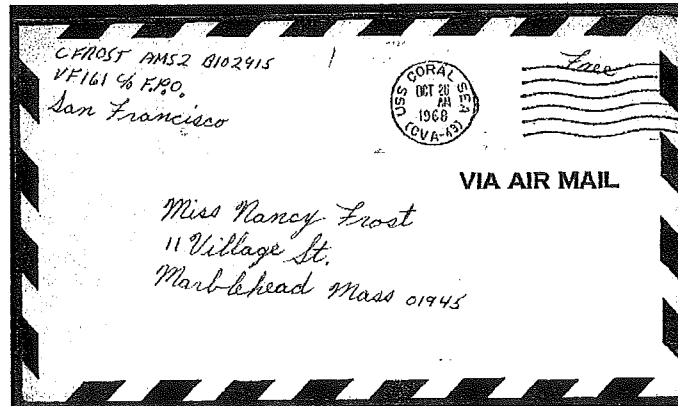 C FROST AMS2 B102915
VF161 c/o F.P.O.
San Francisco
USS CORAL SEA
OCT 26
AM
1968
(CVA-43)
Free
VIA AIR MAIL
Miss Nancy Frost
11 Village St.
Marblehead Mass 01945